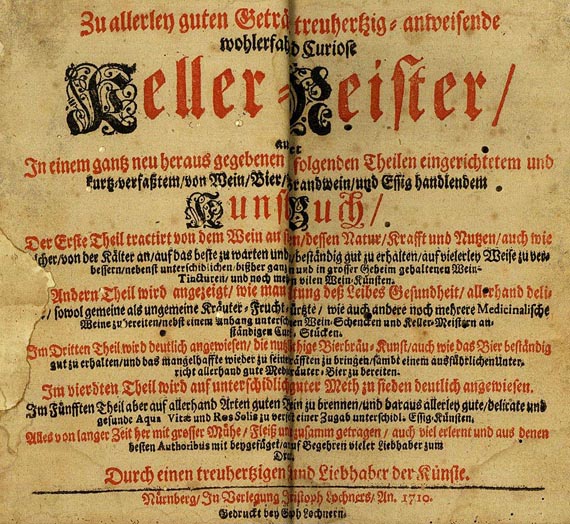 Zu allerley guten Geträ treuhertzig-anweisende
wohlerfah d Curiose
Keller-Meister/
In einem gantz neu heraus gegebenen folgenden Theilen eingerichtetem und
kurtz-verfaßtem/von Wein/Bier/Brandwein/und Essig handlendem
Kunst Buch/
Der Erste Theil tractirt von dem Wein an sich/dessen Natur/Krafft und Nutzen/auch wie
cher/von der Kälter an/auf das beste zu warten und beständig gut zu erhalten/auf vielerley Weise zu ver-
bessern/nebenst unterschidlichen/bißher gantz und in grosser Geheim gehaltenen Wein-
Tincturen/und noch meh vilen Wein-Künsten.
Andern Theil wird angezeigt/wie man tung deß Leibes Gesundheit/allerhand deli-
/sowol gemeine als ungemeine Kräuter-Frucht- ürtzte/wie auch andere noch mehrere Medicinalische
Weine zu bereiten/nebst einem Anhang untersch Wein-Schencken und Keller-Meistern an-
ständigen Stücken.
Im Dritten Theil wird deutlich angewiesen/die nu hige Bierbräu-Kunst/auch wie das Bier beständig
gut zu erhalten/und das mangelhaffte wieder zu sein räfften zu bringen/samt einem ausführlichen Unter-
richt allerhand gute Med räuter-Bier zu bereiten.
Im vierdten Theil wird auf unterschidlich guter Meth zu sieden deutlich angewiesen.
Im Fünfften Theil aber auf allerhand Arten guten in zu brennen/und daraus allerley gute/delicate und
gesunde Aqua Vitæ und Ros Solis zu ver einer Zugab unterschidl. Essig-Künsten.
Alles von langer Zeit her mit grosser Mühe/Fleiß un zusamm getragen/auch viel erlernt und aus denen
besten Authoribus mit beygefüget/auf Begehren vieler Liebhaber zum
Dru
Durch einen treuhertzigen und Liebhaber der Künste.
Nürnberg/In Verlegung ristoph Lochners/An. 1710.
Gedruckt bey ph Lochnern.